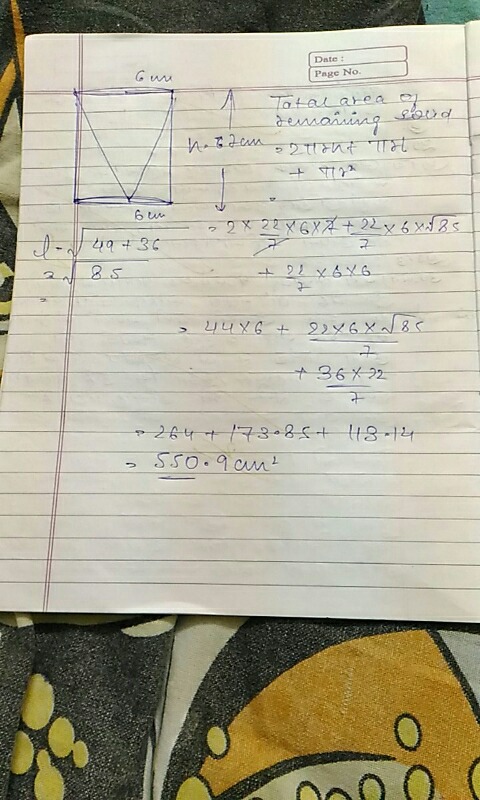 Date :
Page No.
6 cm
h = 7 cm
6 cm
Total area of
remaining solid
= 2πrh + πrl
+ πr²
l = √49 + 36
= √85
=
= 2 × 22/7 × 6 × 7 + 22/7 × 6 × √85
+ 22/7 × 6 × 6
= 44 × 6 + 22 × 6 × √85/7
+ 36 × 22/7
= 264 + 173.85 + 113.14
= 550.9 cm²